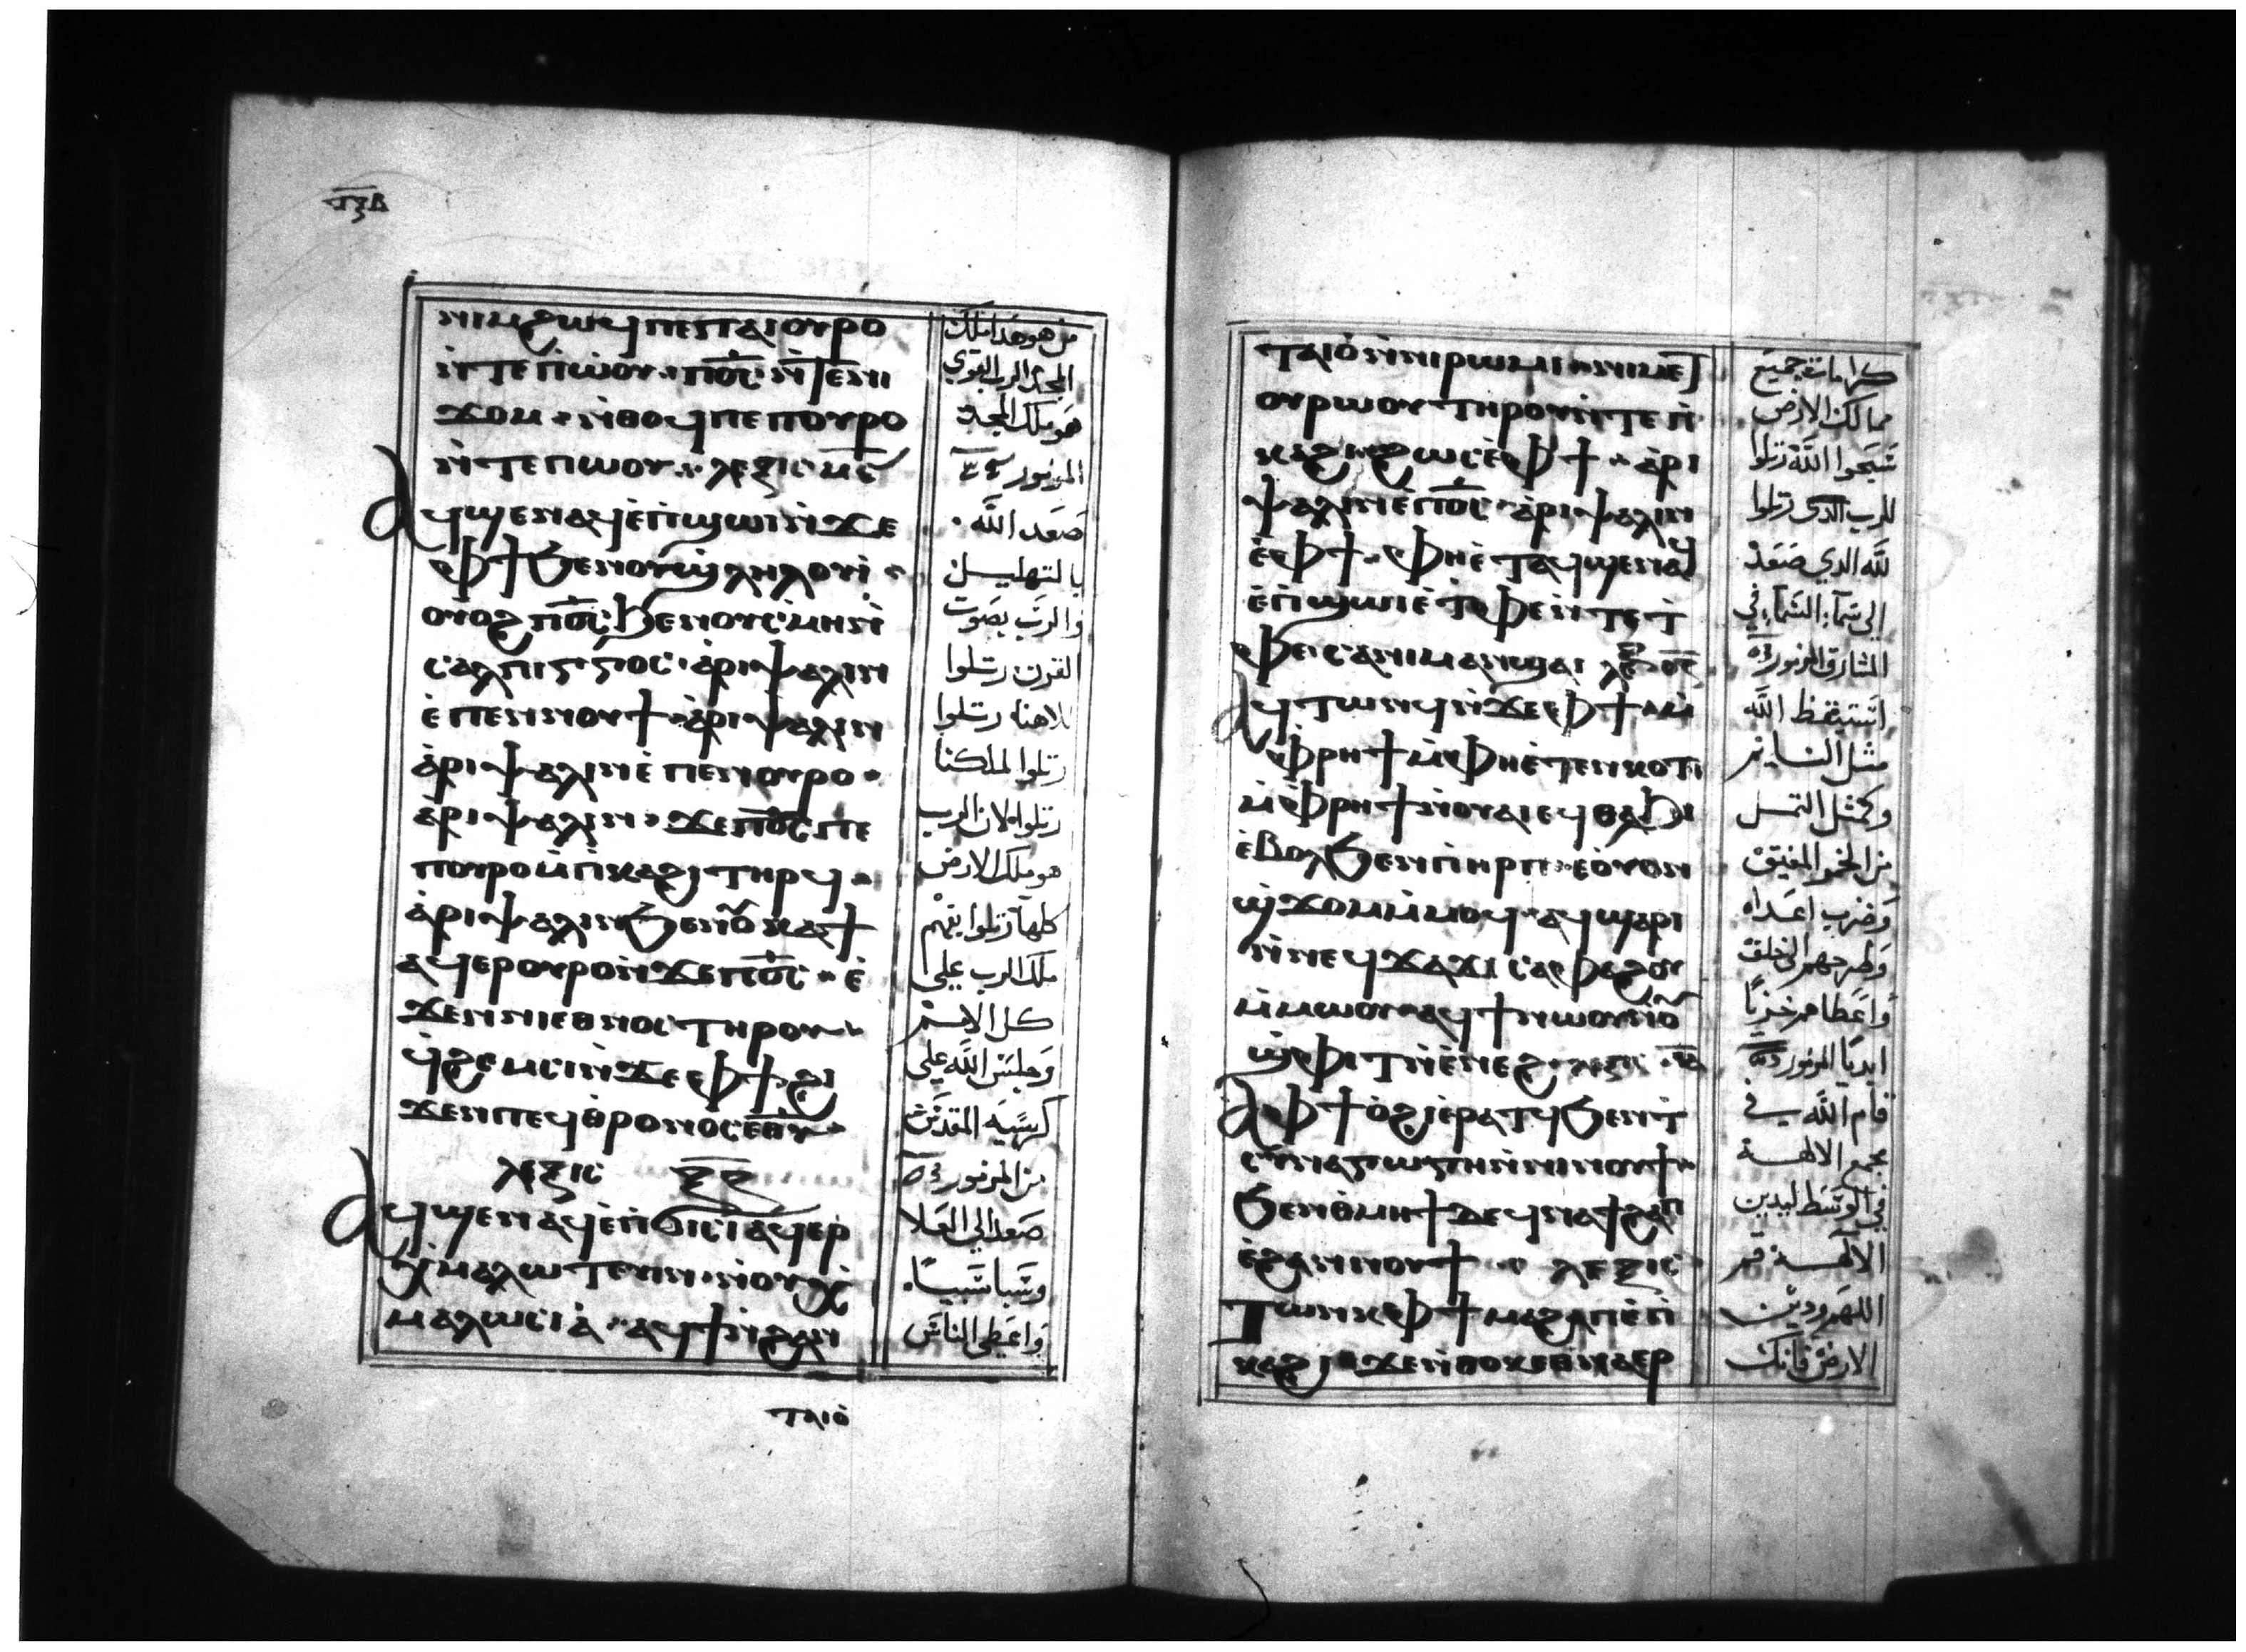 ⲧⲝⲃ
ⲛⲓⲙ ϩⲱϥ ⲡⲉ ⲡⲁⲓⲟⲩⲣⲟ
ⲛ̀ⲧⲉ ⲡ̀ⲱⲟⲩ ⲡⲟ̅ⲥ̅
ϫⲟⲙ ⲛ̀ⲑⲟϥ ⲡⲉ ⲡⲟⲩⲣⲟ
ⲛ̀ⲧⲉ ⲡ̀ⲱⲟⲩ ⲗⲉⲝⲓⲥ ⲙ̅ⲋ̅
ⲁϥϣⲉⲛⲁϥ ⲉ̀ⲡ̀ϣⲱⲓ ⲛ̀ϫⲉ
ⲫϯ ϧⲉⲛ ⲟⲩⲉ̀ϣⲗⲏⲗⲟⲩⲓ̀
ⲟⲩⲟϩ ⲡⲟ̅ⲥ̅ ϧⲉⲛ ⲟⲩⲥ̀ⲙⲏ ⲛ̀
ⲥⲁⲗⲡⲓⲅⲅⲟⲥ ⲁ̀ⲣⲓⲯⲁⲗⲓⲛ
ⲉ̀ⲡⲉⲛⲛⲟⲩϯ ⲁ̀ⲣⲓⲯⲁⲗⲓⲛ
ⲁ̀ⲣⲓⲯⲁⲗⲓⲛ ⲉ̀ⲡⲉⲛⲟⲩⲣⲟ
ⲁ̀ⲣⲓⲯⲁⲗⲓⲛ ϫⲉ ⲡⲟ̅ⲥ̅ ⲡⲉ
ⲡⲟⲩⲣⲟ ⲙ̀ⲡ̀ⲕⲁϩⲓ ⲧⲏⲣϥ
ⲁ̀ⲣⲓⲯⲁⲗⲓⲛ ϧⲉⲛ ⲟⲩⲕⲁϯ
ⲁϥⲉⲣⲟⲩⲣⲟ ⲛ̀ϫⲉ ⲡⲟ̅ⲥ̅ ⲉ̀
ϫⲉⲛ ⲛⲓⲉⲑⲛⲟⲥ ⲧⲏⲣⲟⲩ
ϥ̀ϩⲉⲙⲥⲓ ⲛ̀ϫⲉ ⲫϯ ϩⲓ
ϫⲉⲛ ⲡⲉϥⲑⲣⲟⲛⲟⲥ ⲉ̅ⲑ̅ⲩ̅
ⲗⲉⲝⲓⲥ ⲝ̅ⲍ̅
ⲁϥϣⲉⲛⲁϥ ⲉ̀ⲡ̀ϭⲓⲥⲓ ⲁϥⲉⲣ
ⲉⲭ̀ⲙⲁⲗⲱⲧⲉⲩⲓⲛ ⲛ̀ⲟⲩⲉⲭ̀
ⲙⲁⲗⲱⲥⲓⲁ̀ ⲁϥϯ ⲛ̀ϩⲁⲛ
ⲧⲁⲓⲟ̀
من هو هذا ملك
المجد الرب القوي
هو ملك المجد
المزمور ٤٦
صعد الله
بالتهليل
والرب بصوت
القرن رتلوا
لالهنا رتلوا
رتلوا لملكنا
رتلوا لان الرب
هو ملك الارض
كلها رتلوا بفهم
ملك الرب على
كل الامم
وجلس الله على
كرسيه المقدس
من المزمور
صعد الى العلا
وسبا سبيا
واعطى الناس
ⲧⲁⲓⲟ̀ ⲛ̀ⲛⲓⲣⲱⲙⲓ ⲛⲓⲙⲉⲧ
ⲟⲩⲣⲱⲟⲩ ⲧⲏⲣⲟⲩ ⲛ̀ⲧⲉ ⲡ̀
ⲕⲁϩⲓ ϩⲱⲥ ⲉ̀ⲫϯ ⲁ̀ⲣⲓ
ⲯⲁⲗⲓⲛ ⲉ̀ⲡⲟ̅ⲥ̅ ⲁ̀ⲣⲓⲯⲁⲗⲓⲛ
ⲉ̀ⲫϯ ⲫⲏⲉ̀ⲧⲁϥϣⲉⲛⲁϥ
ⲉ̀ⲡ̀ϣⲱⲓ ⲉ̀ⲧ̀ⲫⲉ ⲛ̀ⲧⲉ ⲧ̀
ⲫⲉ ⲥⲁⲛⲓⲙⲁⲛ̀ϣⲁⲓ
ⲁϥⲧⲱⲛϥ ⲛ̀ϫⲉ ⲫϯ ⲙ̀
ⲫ̀ⲣⲏϯ ⲙ̀ⲫⲏⲉ̀ⲧⲉⲛⲕⲟⲧ
ⲙ̀ⲫ̀ⲣⲏϯ ⲛ̀ⲟⲩⲁⲓ ⲉϥⲑⲁϧⲓ
ⲉ̀ⲃⲟⲗ ϧⲉⲛ ⲡ̀ⲏⲣⲡ ⲉⲟ̀ⲩⲟⲛ
ϣ̀ϫⲟⲙ ⲙ̀ⲙⲟϥ ⲁϥϣⲁⲣⲓ
ⲛ̀ⲛⲉϥϫⲁϫⲓ ⲥⲁⲫⲁϩⲟⲩ
ⲙ̀ⲙⲱⲟⲩ ⲁϥϯ ⲛⲱⲟⲩ ⲛ̀ⲟⲩ
ϣ̀ⲫⲓⲧ ⲛ̀ⲉ̀ⲛⲉϩ ⲗⲉⲝⲓⲥ
ⲁ̀ ⲫϯ ⲟ̀ϩⲓ ⲉ̀ⲣⲁⲧϥ ϧⲉⲛ ⲧ̀
ⲥⲩⲛⲁⲅⲱⲅⲏ ⲛ̀ⲛⲓⲛⲟⲩϯ
ϧⲉⲛ ⲑ̀ⲙⲏϯ ⲇⲉ ϥ̀ⲛⲁϯϩⲁⲡ
ⲉ̀ϩⲁⲛⲛⲟⲩϯ ⲗⲉⲝⲓⲥ
ⲧⲱⲛⲕ ⲫϯ ⲙⲁϩⲁⲡ ⲉ̀ⲡ̀
ⲕⲁϩⲓ ϫⲉ ⲛ̀ⲑⲟⲕ ⲉⲑⲛⲁⲉⲣ
كرامات جميع
ممالك الارض
سبحوا الله رتلوا
للرب الذي رتلوا
لله الذي صعد
الى سماء السماء في
المشارق المزمور
استيقظ الله
مثل النايم
وكمثل الثمل
من الخمر المفيق
وضرب اعداه
وطرحهم الى خلف
واعطاهم خزيا
ابديا المزمور
قام الله في
مجمع الالهة
في الوسط ليدين
الالهة قم
اللهم ودين
الارض فانك